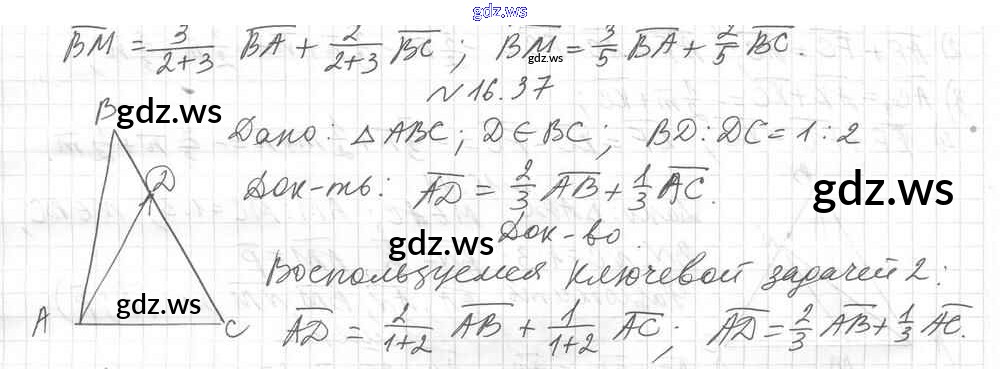 gdz.ws
BM = 3/(2+3) BA + 2/(2+3) BC; BM = 3/5 BA + 2/5 BC.
gdz.ws
№ 16.37
B gdz.ws
Дано: △ABC; D ∈ BC; BD : DC = 1 : 2
D
Док-ть: AD = 2/3 AB + 1/3 AC.
gdz.ws
Док-во.
gdz.ws
Воспользуемся ключевой задачей 2:
A gdz.ws C
AD = 2/(1+2) AB + 1/(1+2) AC; AD = 2/3 AB + 1/3 AC.